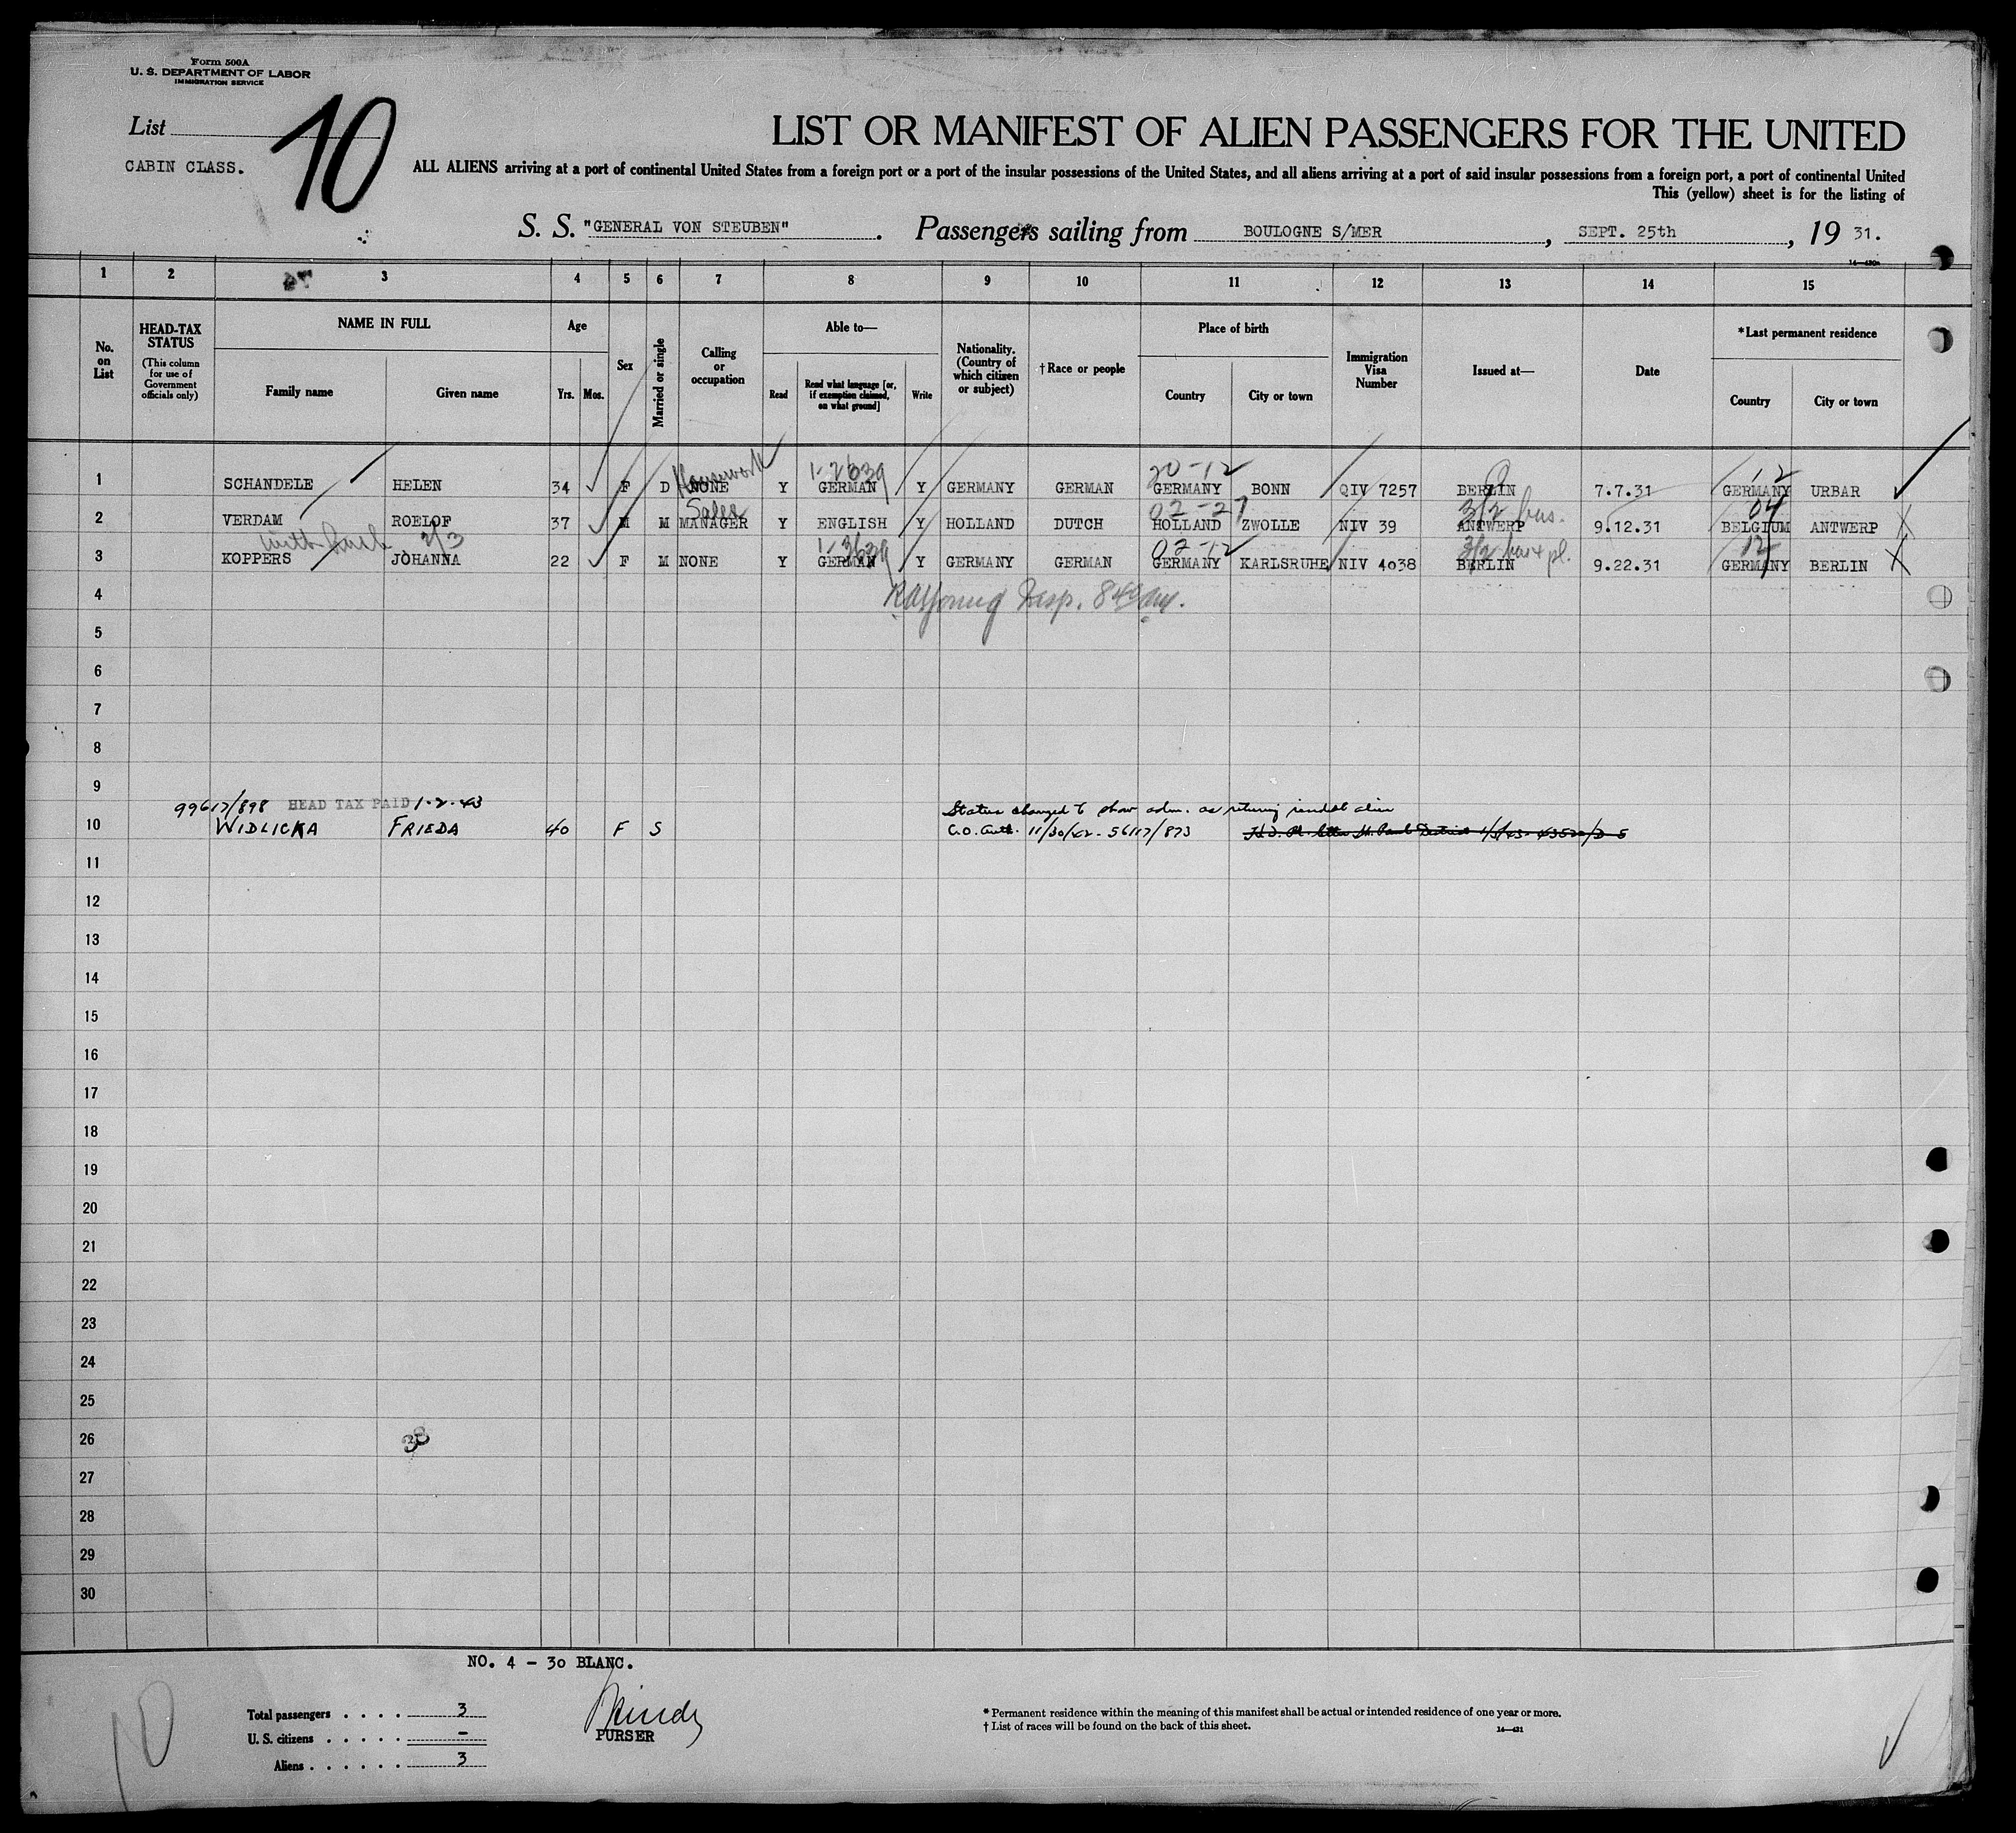 Form 500A
U. S. DEPARTMENT OF LABOR
IMMIGRATION SERVICE
List 10
CABIN CLASS.
LIST OR MANIFEST OF ALIEN PASSENGERS FOR THE UNITED
ALL ALIENS arriving at a port of continental United States from a foreign port or a port of the insular possessions of the United States, and all aliens arriving at a port of said insular possessions from a foreign port, a port of continental United
This (yellow) sheet is for the listing of
S. S. "GENERAL VON STEUBEN". Passengers sailing from BOULOGNE S/MER, SEPT. 25th, 19 31.
1 2 3 4 5 6 7 8 9 10 11 12 13 14 15
No. on List
HEAD-TAX STATUS
(This column for use of Government officials only)
NAME IN FULL
Family name
Given name
Age
Yrs. Mos.
Sex
Married or single
Calling or occupation
Able to—
Read
Read what language [or, if exemption claimed, on what ground]
Write
Nationality. (Country of which citizen or subject)
†Race or people
Place of birth
Country
City or town
Immigration Visa Number
Issued at—
Date
*Last permanent residence
Country
City or town
Housework 1-2639 20-12 12
1 SCHANDELE HELEN 34 F D NONE Y GERMAN Y GERMANY GERMAN GERMANY BONN QIV 7257 BERLIN 7.7.31 GERMANY URBAR
Sales 02-27 3/2 bus. 04
2 VERDAM ROELOF 37 M M MANAGER Y ENGLISH Y HOLLAND DUTCH HOLLAND ZWOLLE NIV 39 ANTWERP 9.12.31 BELGIUM ANTWERP
with 2/3 1-3639 02-12 3/2 pl. 12
3 KOPPERS JOHANNA 22 F M NONE Y GERMAN Y GERMANY GERMAN GERMANY KARLSRUHE NIV 4038 BERLIN 9.22.31 GERMANY BERLIN
4 Insp.
5
6
7
8
9
99617/898 HEAD TAX PAID 1-2-43 Status changed to show adm. as returning alien
10 WIDLICKA FRIEDA 40 F S C.O. Auth. 11/30/42 - 56117/873
11
12
13
14
15
16
17
18
19
20
21
22
23
24
25
26 38
27
28
29
30
NO. 4 - 30 BLANC.
10
Total passengers . . . . 3
U. S. citizens . . . . . -
Aliens . . . . . . 3
PURSER
* Permanent residence within the meaning of this manifest shall be actual or intended residence of one year or more.
† List of races will be found on the back of this sheet.
14—431